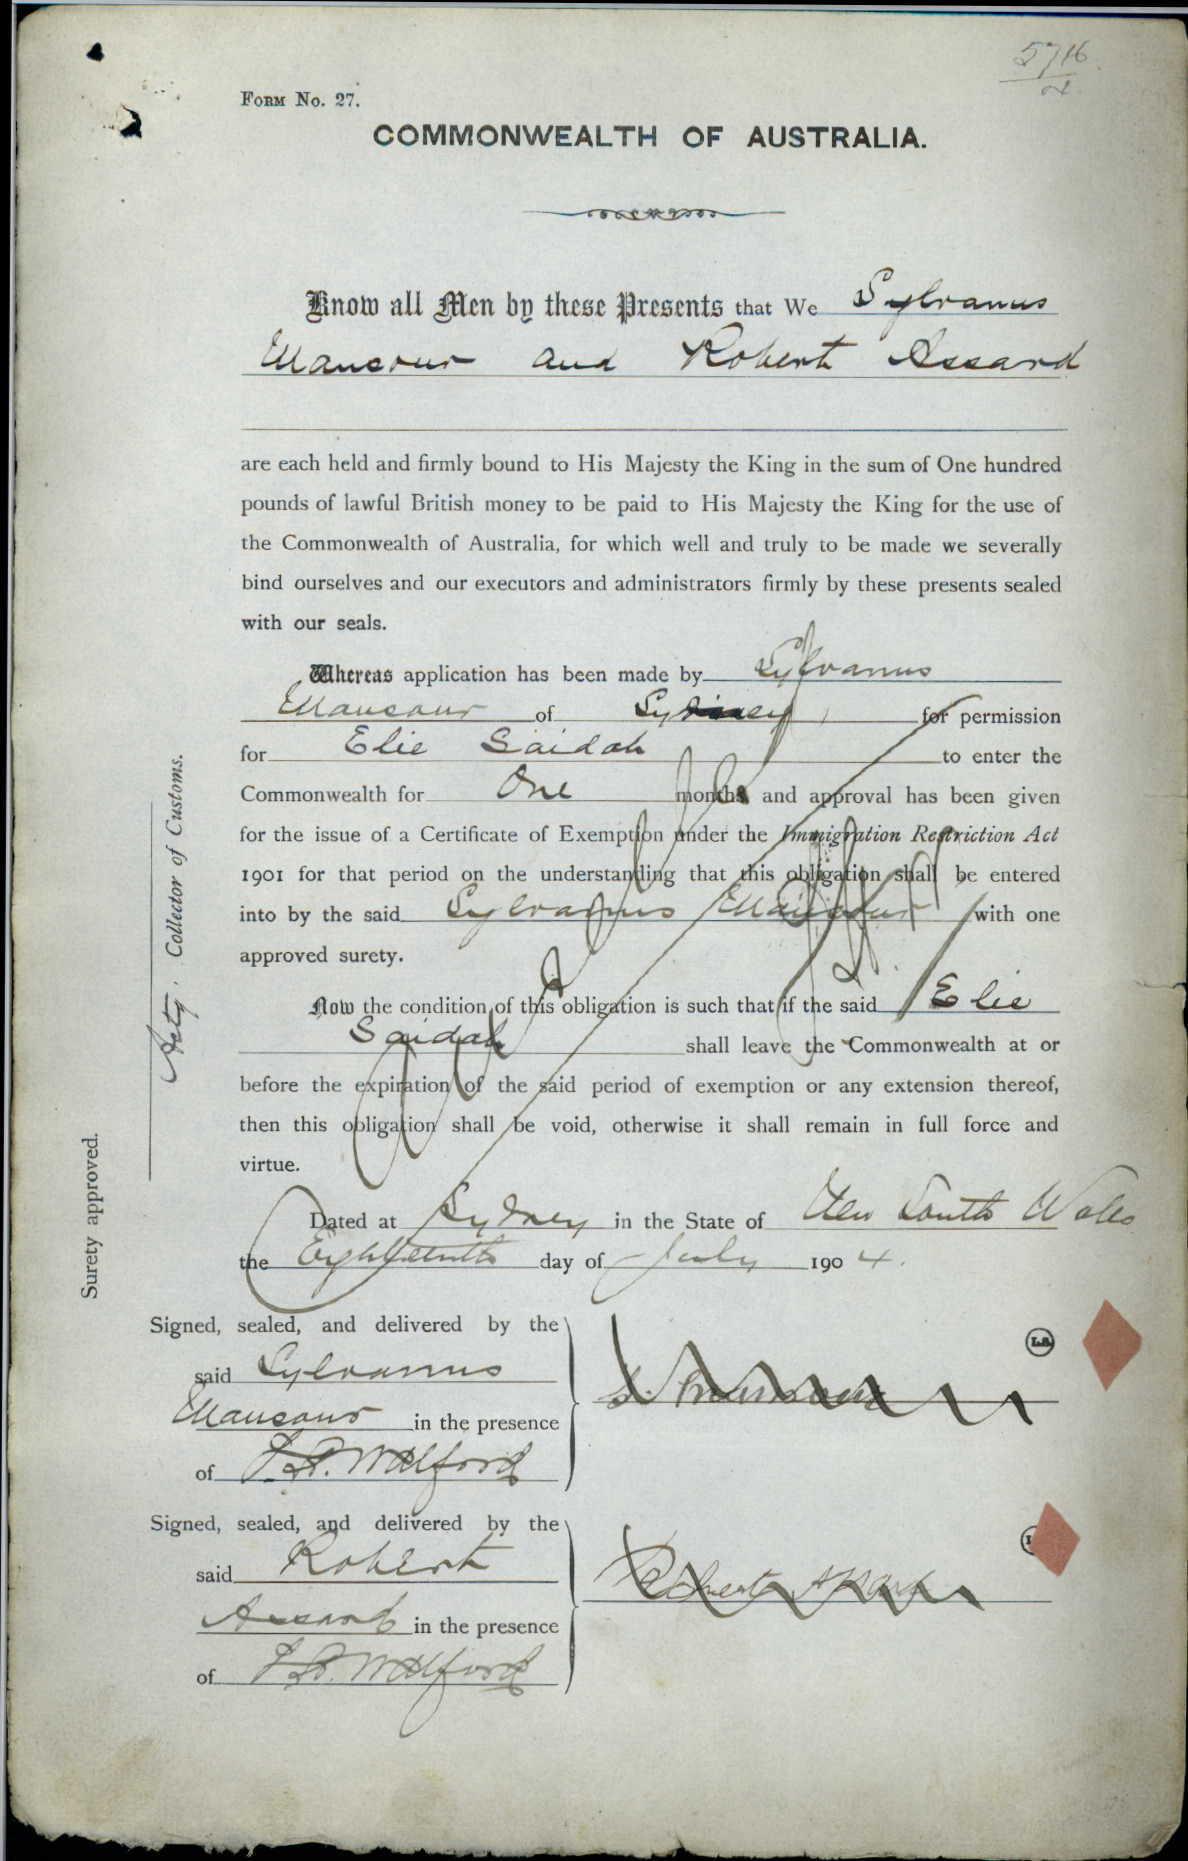 5716
FORM No. 27.
COMMONWEALTH OF AUSTRALIA.
Know all Men by these Presents that We Sylvanus
Mansour and Robert Assard
are each held and firmly bound to His Majesty the King in the sum of One hundred
pounds of lawful British money to be paid to His Majesty the King for the use of
the Commonwealth of Australia, for which well and truly to be made we severally
bind ourselves and our executors and administrators firmly by these presents sealed
with our seals.
Whereas application has been made by Sylvanus
Mansour of Sydney, for permission
for Elie Saidah to enter the
Commonwealth for One months and approval has been given
for the issue of a Certificate of Exemption under the Immigration Restriction Act
1901 for that period on the understanding that this obligation shall be entered
into by the said Sylvanus Mansour with one
approved surety.
Now the condition of this obligation is such that if the said Elie
Saidah shall leave the Commonwealth at or
before the expiration of the said period of exemption or any extension thereof,
then this obligation shall be void, otherwise it shall remain in full force and
virtue.
Dated at Sydney in the State of New South Wales
the Eighteenth day of July 1904.
Signed, sealed, and delivered by the
said Sylvanus
Mansour in the presence
of Walford
S. Mansour
L.S.
Signed, sealed, and delivered by the
said Robert
Assard in the presence
of Walford
Robert Assard
Surety approved.
Actg. Collector of Customs.